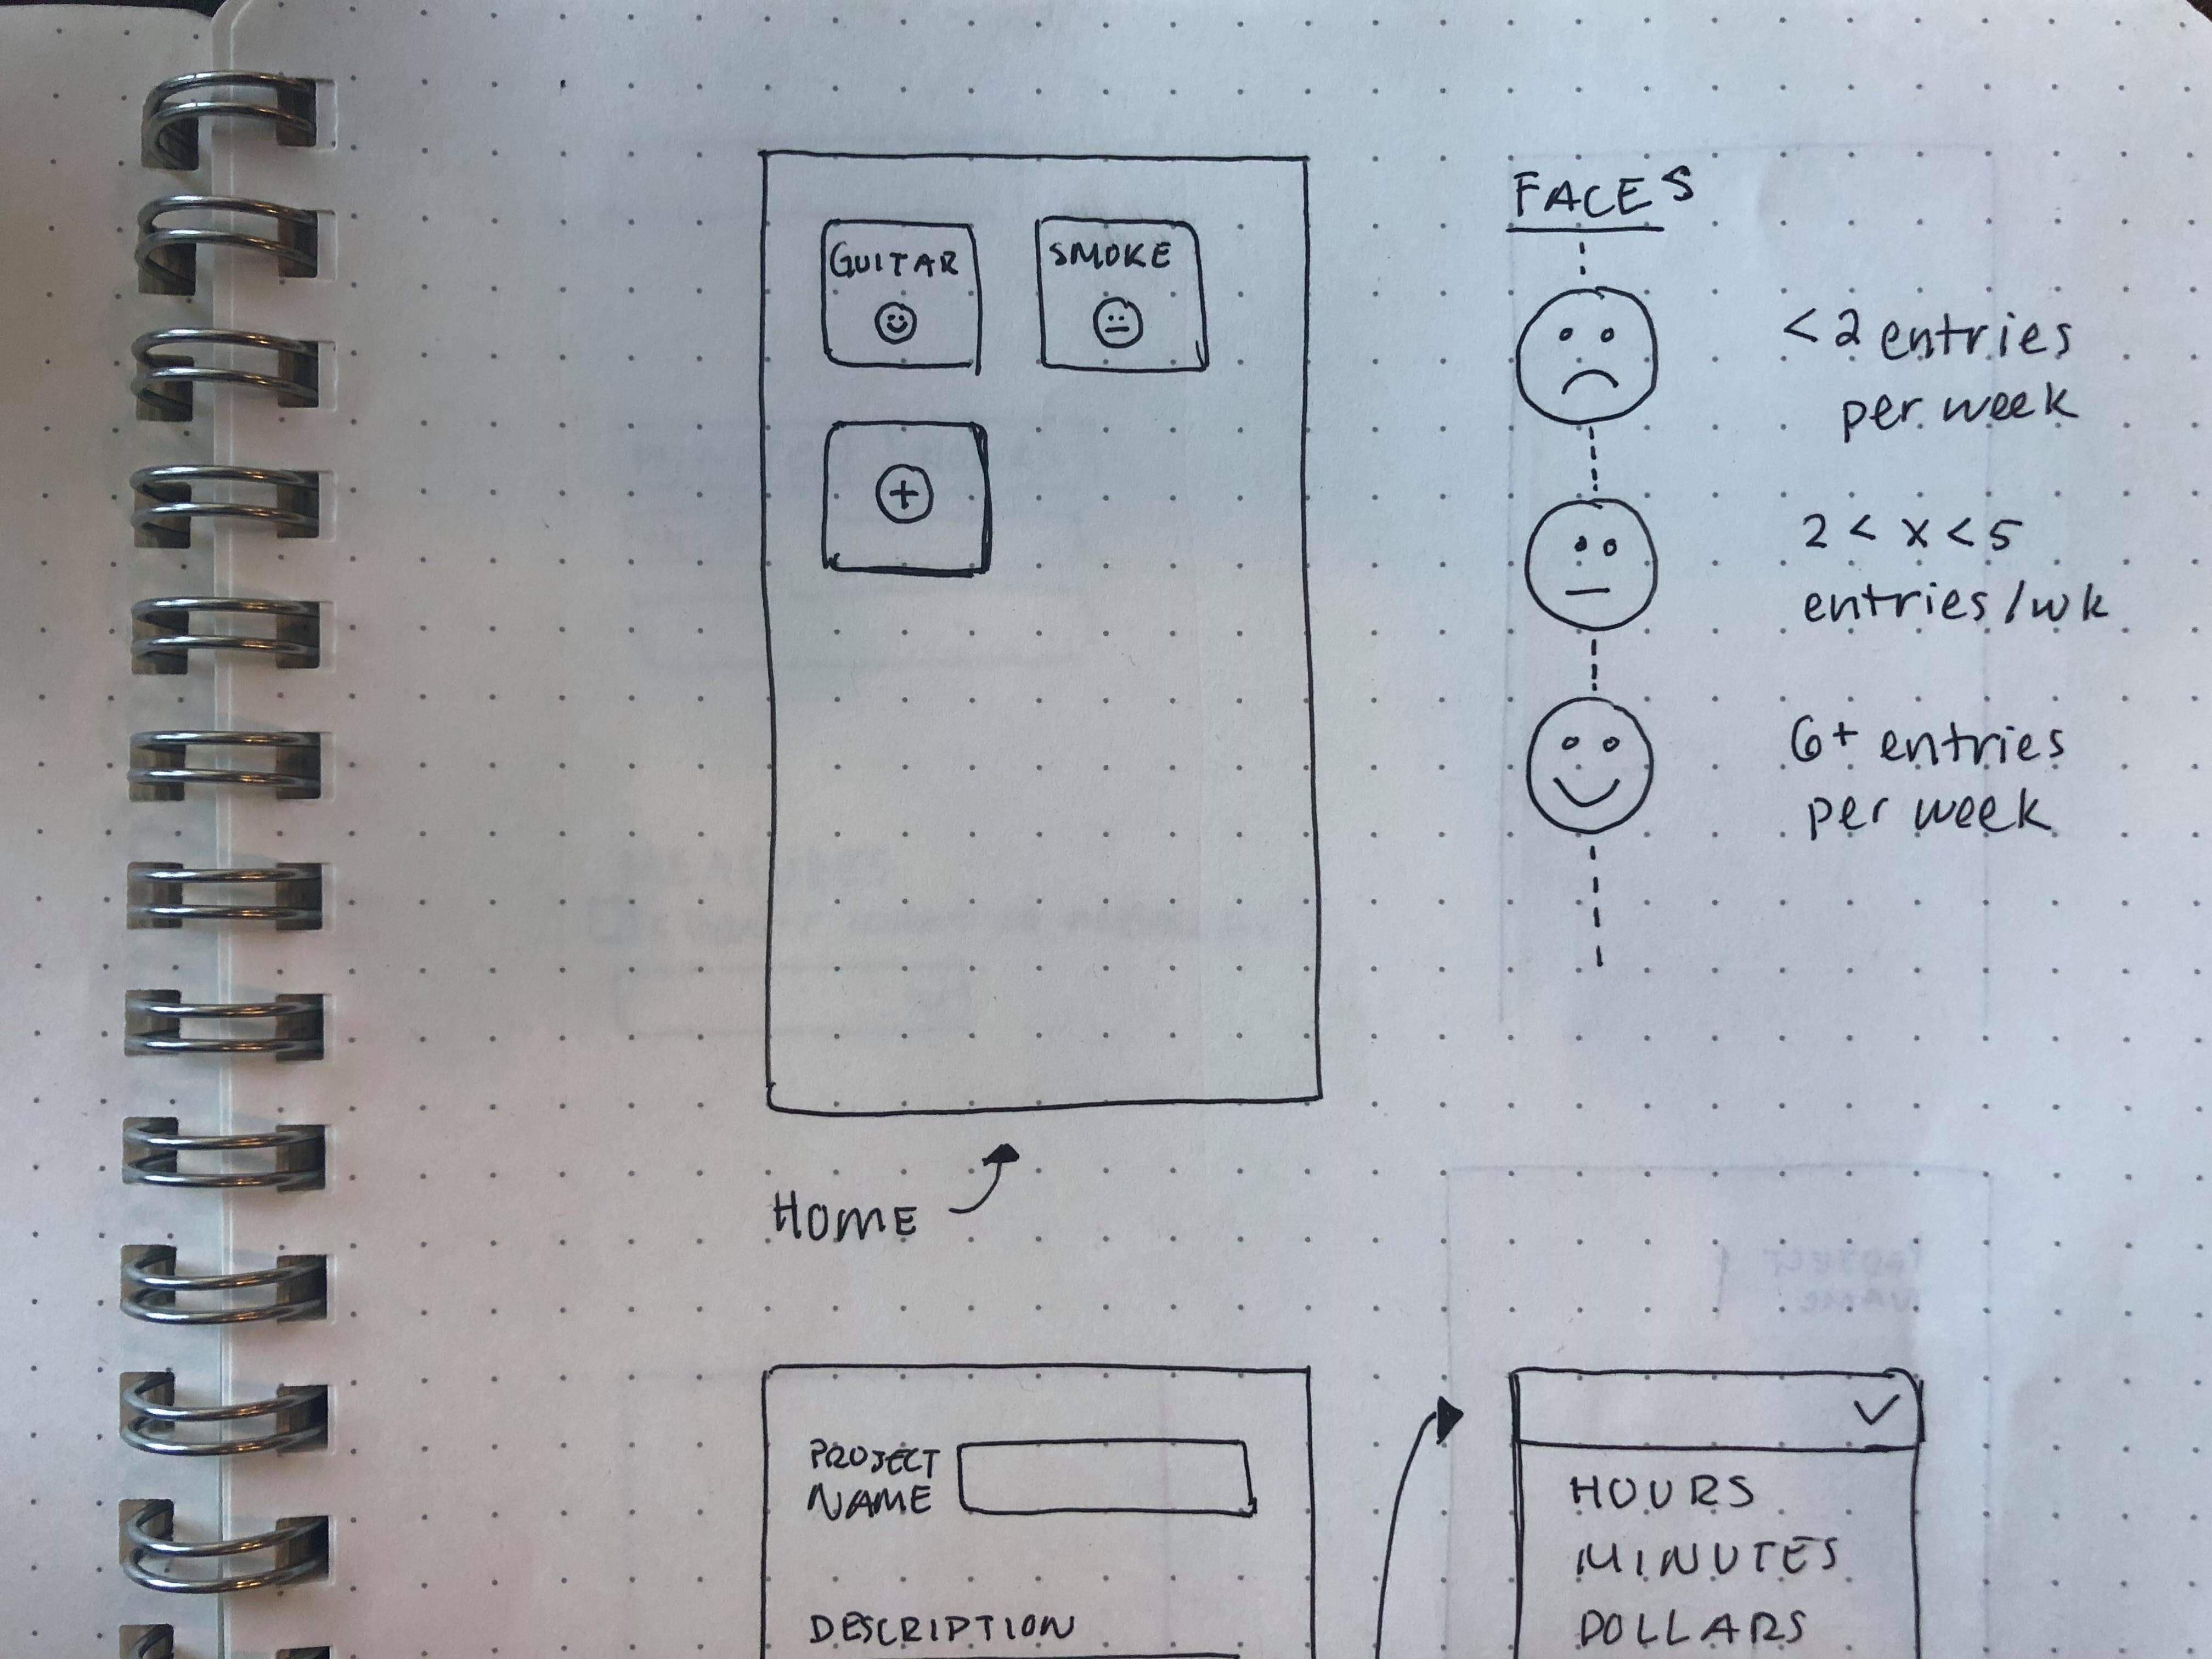 GUITAR
SMOKE
HOME
FACES
<2 entries
per week
2 < x < 5
entries/wk
6+ entries
per week
PROJECT
NAME
DESCRIPTION
HOURS
MINUTES
DOLLARS